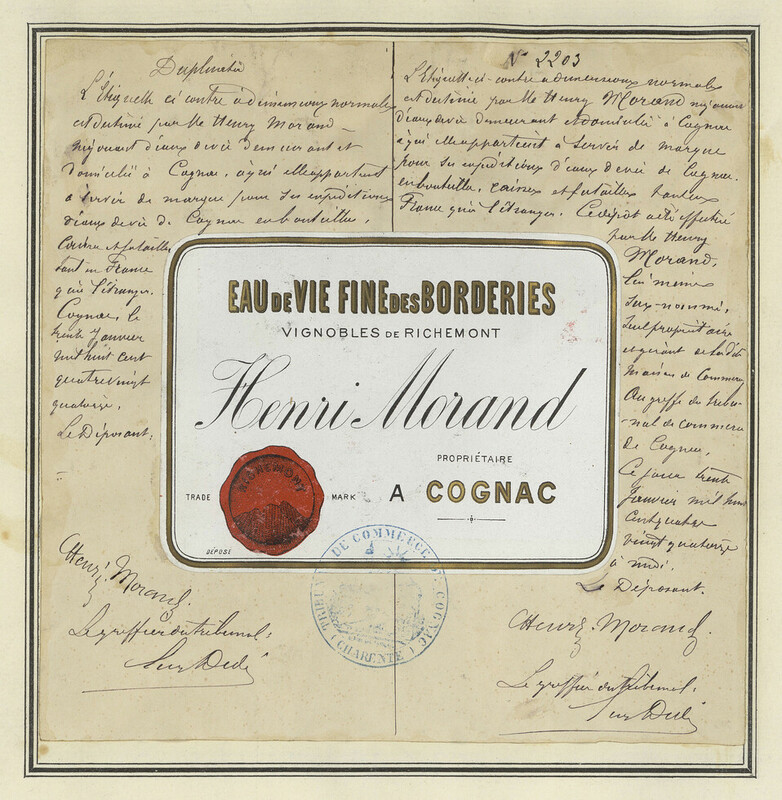 Duplicata
L'étiquette ci contre a dimensions normales
est destiné par Mr Henry Morand
négociant d'eaux de vie demeurant et
domicilié à Cognac, à qui elle appartient
à servir de marque pour ses expéditions
d'eaux de vie de Cognac en bouteilles,
caisses et futailles
tant en France
qu'à l'étranger.
Cognac, le
trente Janvier
mil huit cent
quatre vingt
quatorze.
Le Déposant:
Henri Morand
Le greffier du tribunal:
N° 2203
L'étiquette ci-contre a dimensions normales
est destiné par Mr Henry Morand négociant
d'eaux de vie demeurant et domicilié à Cognac
à qui elle appartient à servir de marque
pour ses expéditions d'eaux de vie de Cognac
en bouteilles, caisses et futailles tant en
France qu'à l'étranger. Ce dépôt a été effectué
par Mr Henry
Morand,
lui même
sus-nommé,
seul propriétaire
et gérant de la dite
Maison de Commerce
Au greffe du tribu-
nal de commerce
de Cognac,
Ce jour trente
Janvier mil huit
cent quatre
vingt quatorze
à midi.
Le Déposant.
Henri Morand.
Le greffier du tribunal:
EAU DE VIE FINE DES BORDERIES
VIGNOBLES DE RICHEMONT
Henri Morand
PROPRIÉTAIRE
A COGNAC
TRADE MARK
RICHEMONT
DÉPOSÉ
TRIBUNAL DE COMMERCE DE COGNAC
(CHARENTE)